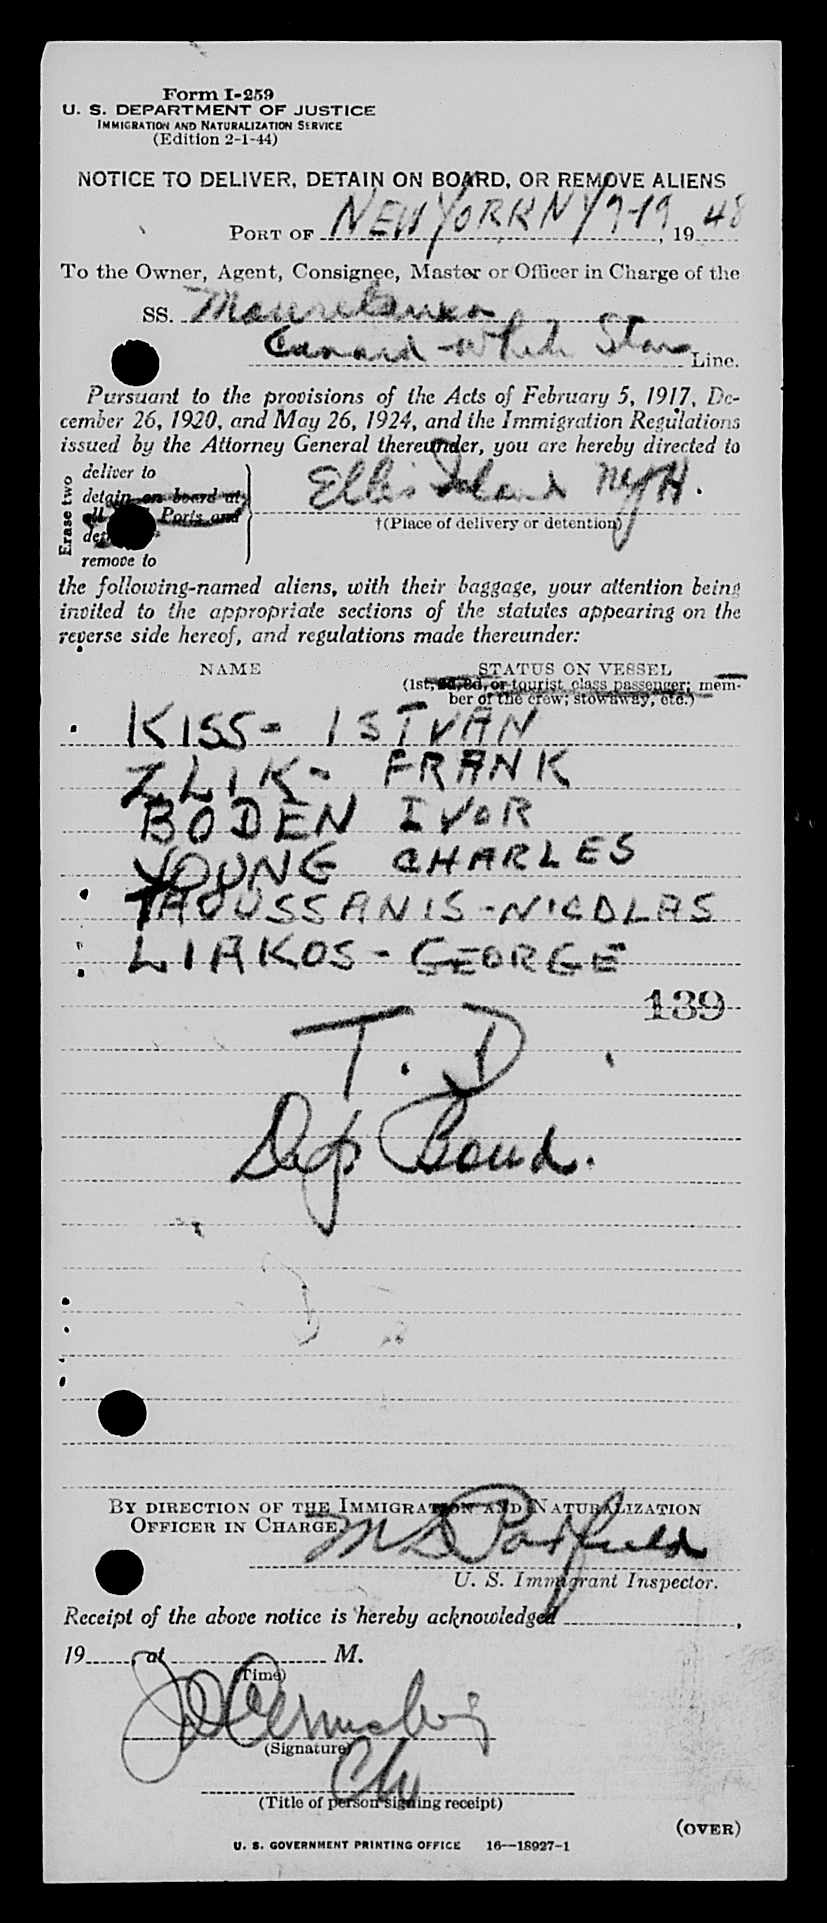 Form I-259
U. S. DEPARTMENT OF JUSTICE
IMMIGRATION AND NATURALIZATION SERVICE
(Edition 2-1-44)
NOTICE TO DELIVER, DETAIN ON BOARD, OR REMOVE ALIENS
PORT OF NEW YORK NY 9-19, 1948
To the Owner, Agent, Consignee, Master or Officer in Charge of the
SS. Mauretania
Cunard-White Star Line.
Pursuant to the provisions of the Acts of February 5, 1917, De-
cember 26, 1920, and May 26, 1924, and the Immigration Regulations
issued by the Attorney General thereunder, you are hereby directed to
Erase two
deliver to
detain on board at
Ports and
remove to
Ellis Island NYH.
†(Place of delivery or detention)
the following-named aliens, with their baggage, your attention being
invited to the appropriate sections of the statutes appearing on the
reverse side hereof, and regulations made thereunder:
NAME STATUS ON VESSEL
(1st, 2d, 3d, or tourist class passenger; mem-
ber of the crew; stowaway, etc.)
KISS - ISTVAN
ZLIK - FRANK
BODEN IVOR
YOUNG CHARLES
TAOUSSANIS - NICOLAS
LIAKOS - GEORGE
139
T. D
Dep Bond.
BY DIRECTION OF THE IMMIGRATION AND NATURALIZATION
OFFICER IN CHARGE
U. S. Immigrant Inspector.
Receipt of the above notice is hereby acknowledged ,
19 , at M.
(Time)
(Signature)
(Title of person signing receipt)
(OVER)
U. S. GOVERNMENT PRINTING OFFICE 16—18927-1